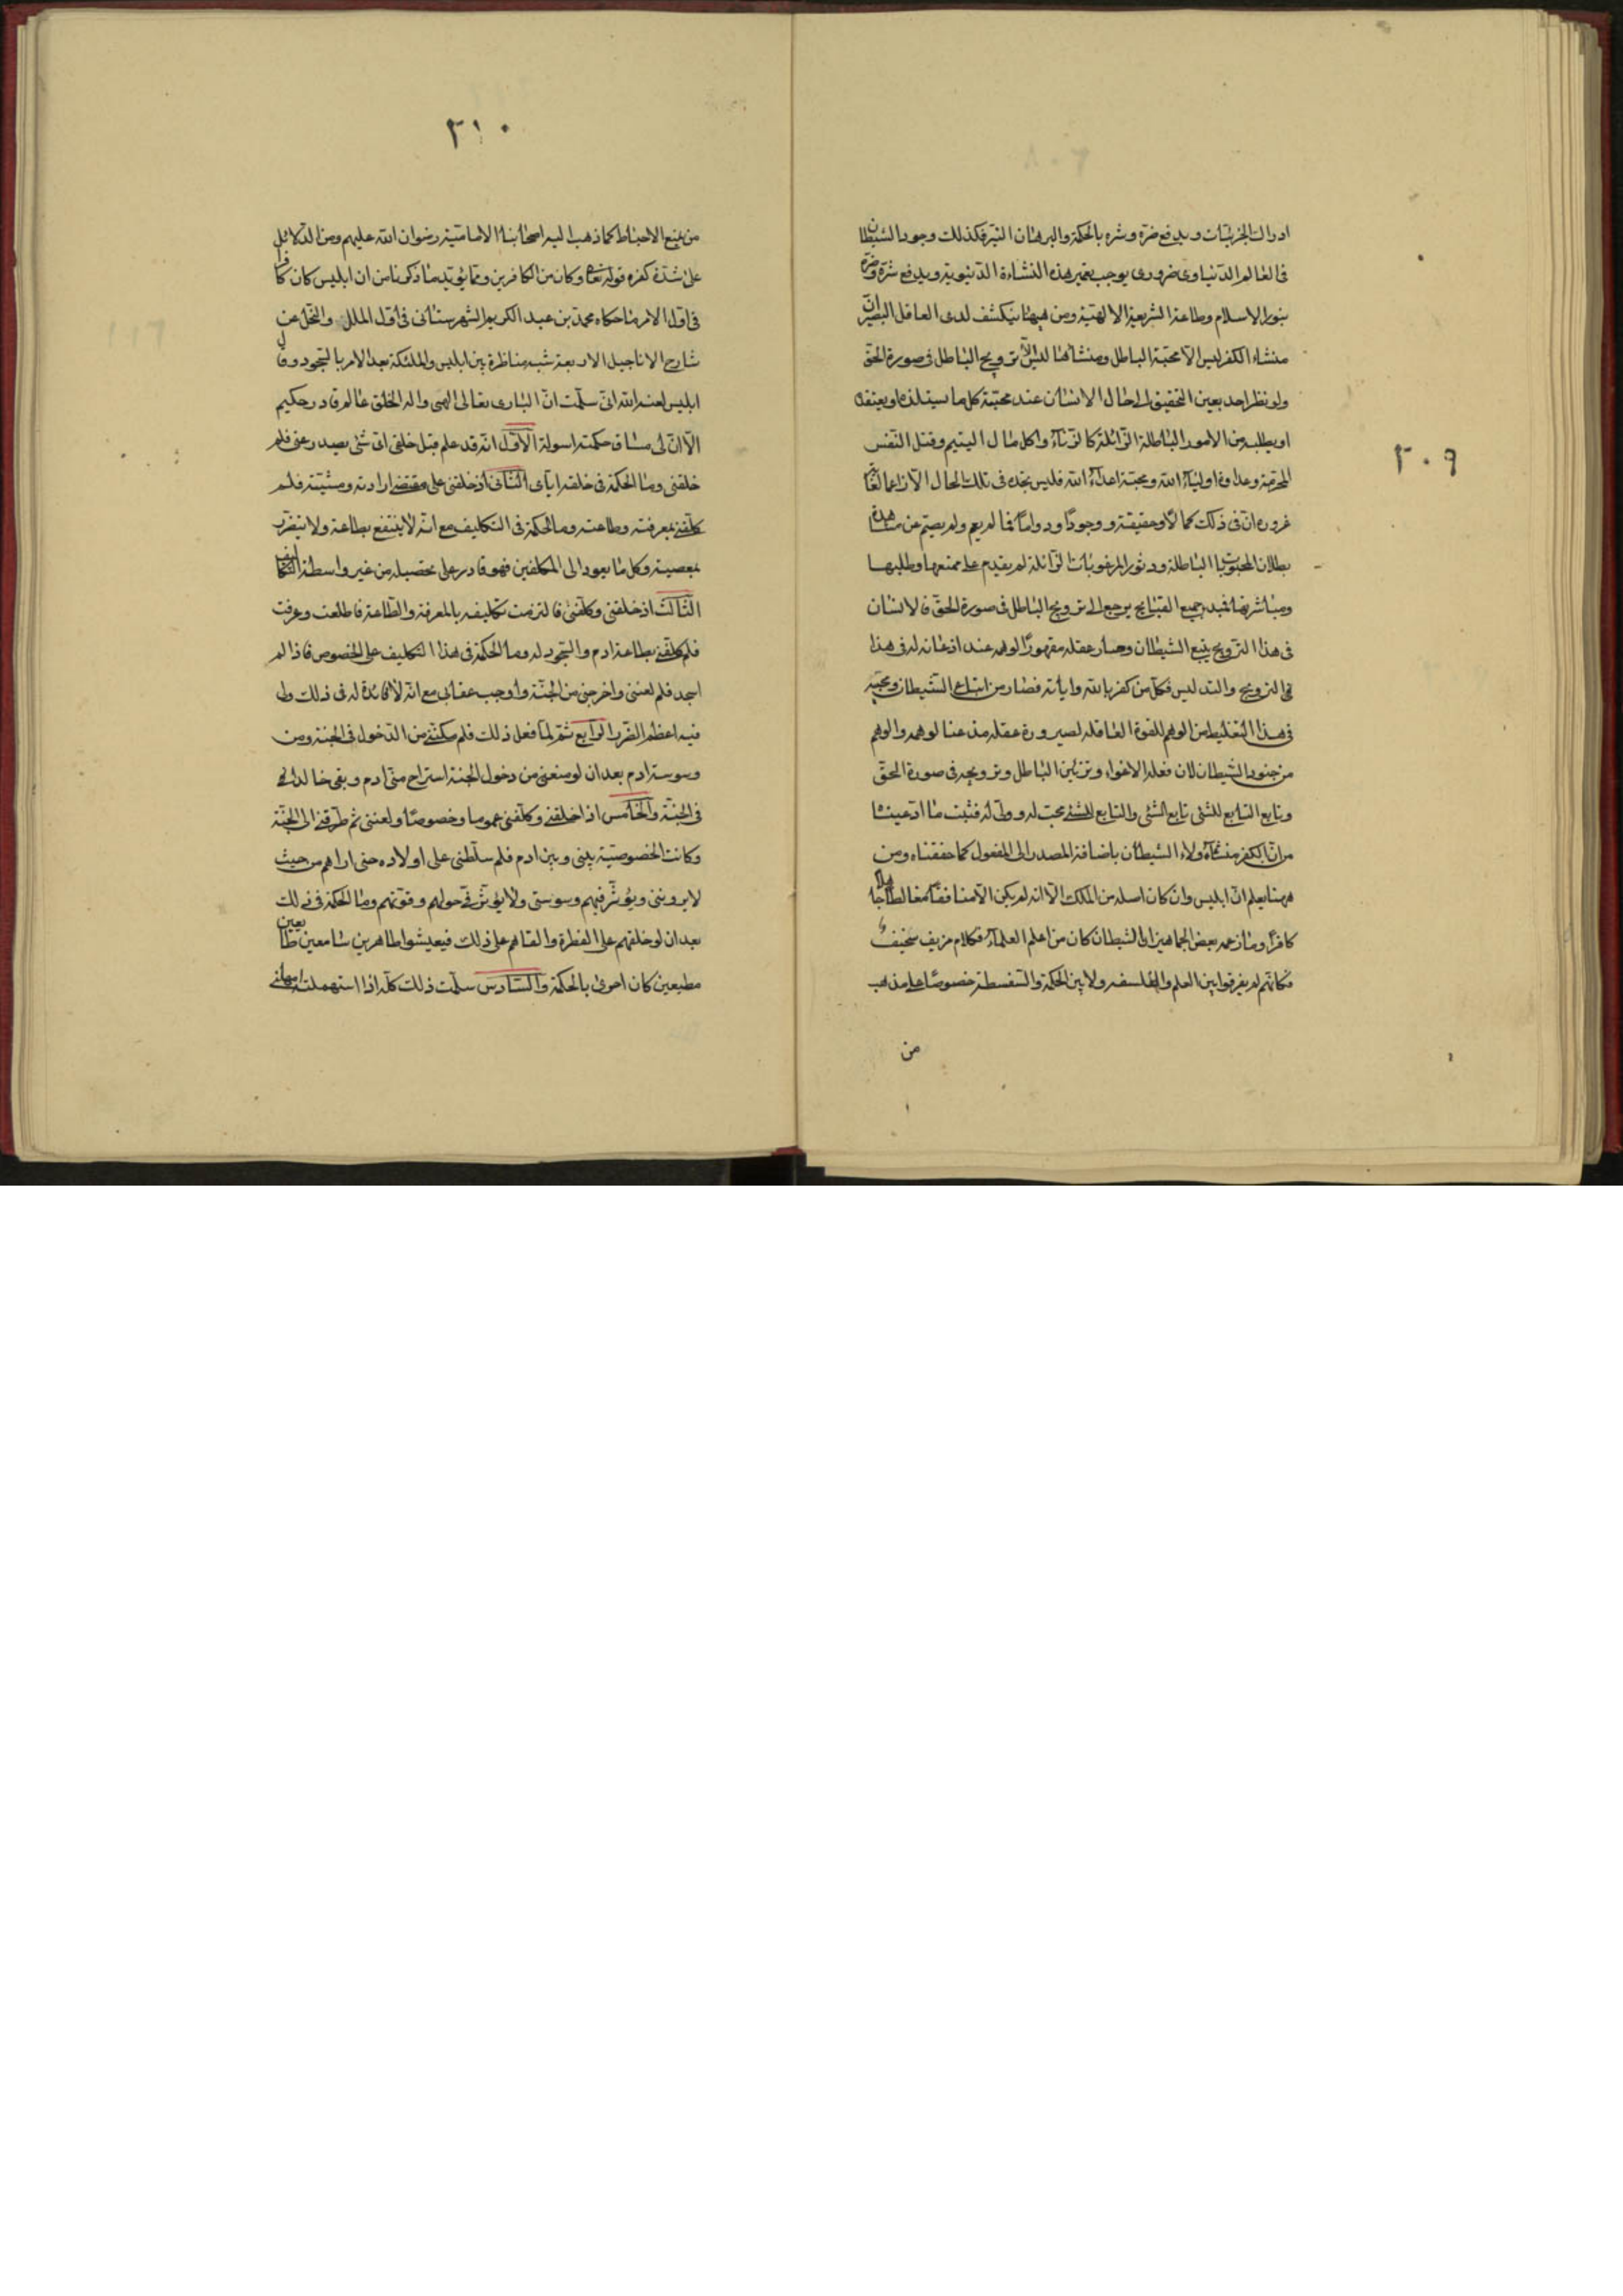 ٢٠٩
ادراك الجزئيات ويدفع ضرّه وشره بالحكمة والبرهان النير فكذلك وجود الشيطان
فى العالم الدنياوى ضرورى يوجب تعمير هذه النشاءة الدنيوية ويدفع شره وضره
بنور الاسلام وطاعة الشريعة الالهية ومن هيهنا ينكشف لدى العاقل البصير انّ
منشاء الكفر ليس الا محبّة الباطل ومنشاها ليس الّا ترويج الباطل فى صورة الحقّ
ولو نظر احد بعين التحقيق الى حال الانسان عند محبّة كل ما يستلذه او يعتقده
او يطلبه من الامور الباطلة الزائلة كالزناء واكل مال اليتيم وقتل النفس
المحرمة وعداوة اولياء الله ومحبّة اعداء الله فليس يجده فى تلك الحال الا زاعما لغاية
غروره انّ فى ذلك كمالا وحقيقة ووجودا ودواما فما لم يعم ولم يصمّ عن مشاهدة
بطلان المحبوبات الباطلة ودثور المرغوبات الزائلة لم يقدم على تمتعها وطلبها
ومباشرتها فمبدء جميع القبايح يرجع الى ترويج الباطل فى صورة الحق فالانسان
فى هذا الترويج يتبع الشيطان وصار عقله مقهورا لوهمه عند اذعانه له فى هذا
فى الترويج والتدليس فكلّ من كفر بالله وآياته فصار من اتباع الشيطان ومحبّيه
فى هذا التغليط من الوهم للقوة العاقلة لصيرورة عقله مذعنا لوهمه والوهم
من جنود الشيطان لان فعله الاغواء وتزيين الباطل وترويجه فى صورة الحقّ
وتابع التابع للشئ تابع الشئ والتابع للشئ محب له وولى له فثبت ما ادعينا
من انّ الكفر منشاؤه ولاء الشيطان باضافة المصدر الى المفعول كما حققناه ومن
ههنا يعلم انّ ابليس وان كان اصله من الملك الّا انه لم يكن الّا منافقا مغالطا جاهلا
كافرا وما زعمه بعض الجماهير انّ الشيطان كان من اعلم العلماء فكلام مزيف سخيف
فكانّهم لم يفرقوا بين العلم والفلسفه ولا بين الحكمة والسفسطة خصوصا على مذهب
من
٢١٠
من يمنع الاحباط كما ذهب اليه اصحابنا الامامية رضوان الله عليهم ومن الدلائل
على شدّة كفره قوله تعا وكان من الكافرين وممّا يؤيد ما ذكرنا من ان ابليس كان كافرا
فى اول الامر ما حكاه محمد بن عبد الكريم الشهرستانى فى اوّل الملل والنحل عن
شارح الاناجيل الاربعة شبه مناظرة بين ابليس والملئكة بعد الامر بالسّجود وقال
ابليس لعنه الله انى سلّمت انّ البارى تعالى الهى واله الخلق عالم قادر حكيم
الّا انّ لى مساق حكمته اسولة الاوّل انّه قد علم قبل خلقى اىّ شئ يصدر عنى فلم
خلقنى وما الحكمة فى خلقه اياى الثانى اذ خلقنى على مقتضى ارادته ومشيّته فلم
كلّفنى بمعرفته وطاعته وما الحكمة فى التكليف مع انّه لا ينتفع بطاعة ولا يتضرّر
بمعصية وكل ما يعود الى المكلفين فهو قادر على تحصيله من غير واسطة التكاليف
الثالث اذ خلقنى وكلّفنى فالتزمت تكليفه بالمعرفة والطّاعة فاطلعت وعرفت
فلم كلفنى بطاعة ادم والسّجود له وما الحكمة فى هذا التكليف على الخصوص فاذا لم
اسجد فلم لعننى واخرجنى من الجنّة واوجب عقابى مع انّه لا فائدة له فى ذلك ولى
فيه اعظم الضّرر الرّابع ثم لمّا فعل ذلك فلم مكّننى من الدّخول فى الجنة ومن
وسوسة ادم بعد ان لو منعنى من دخول الجنة استراح منّى ادم وبقى خالدا
فى الجنّة والخامس اذا خلقنى وكلّفنى عموما وخصوصا ولعننى ثم طرّقنى الى الجنّة
وكانت الخصوصيّة بينى وبين ادم فلم سلّطنى على اولاده حتى اراهم من حيث
لا يروننى ويؤثّر فيهم وسوستى ولا يؤثّر فىّ حولهم وقوّتهم وما الحكمة فى ذلك
بعد ان لو خلقهم على الفطرة والقاهم على ذلك فيعيشوا طاهرين سامعين طايعين
مطيعين كان احرى بالحكمة والسّادس سلّمت ذلك كلّه اذا استمهلته امهلنى